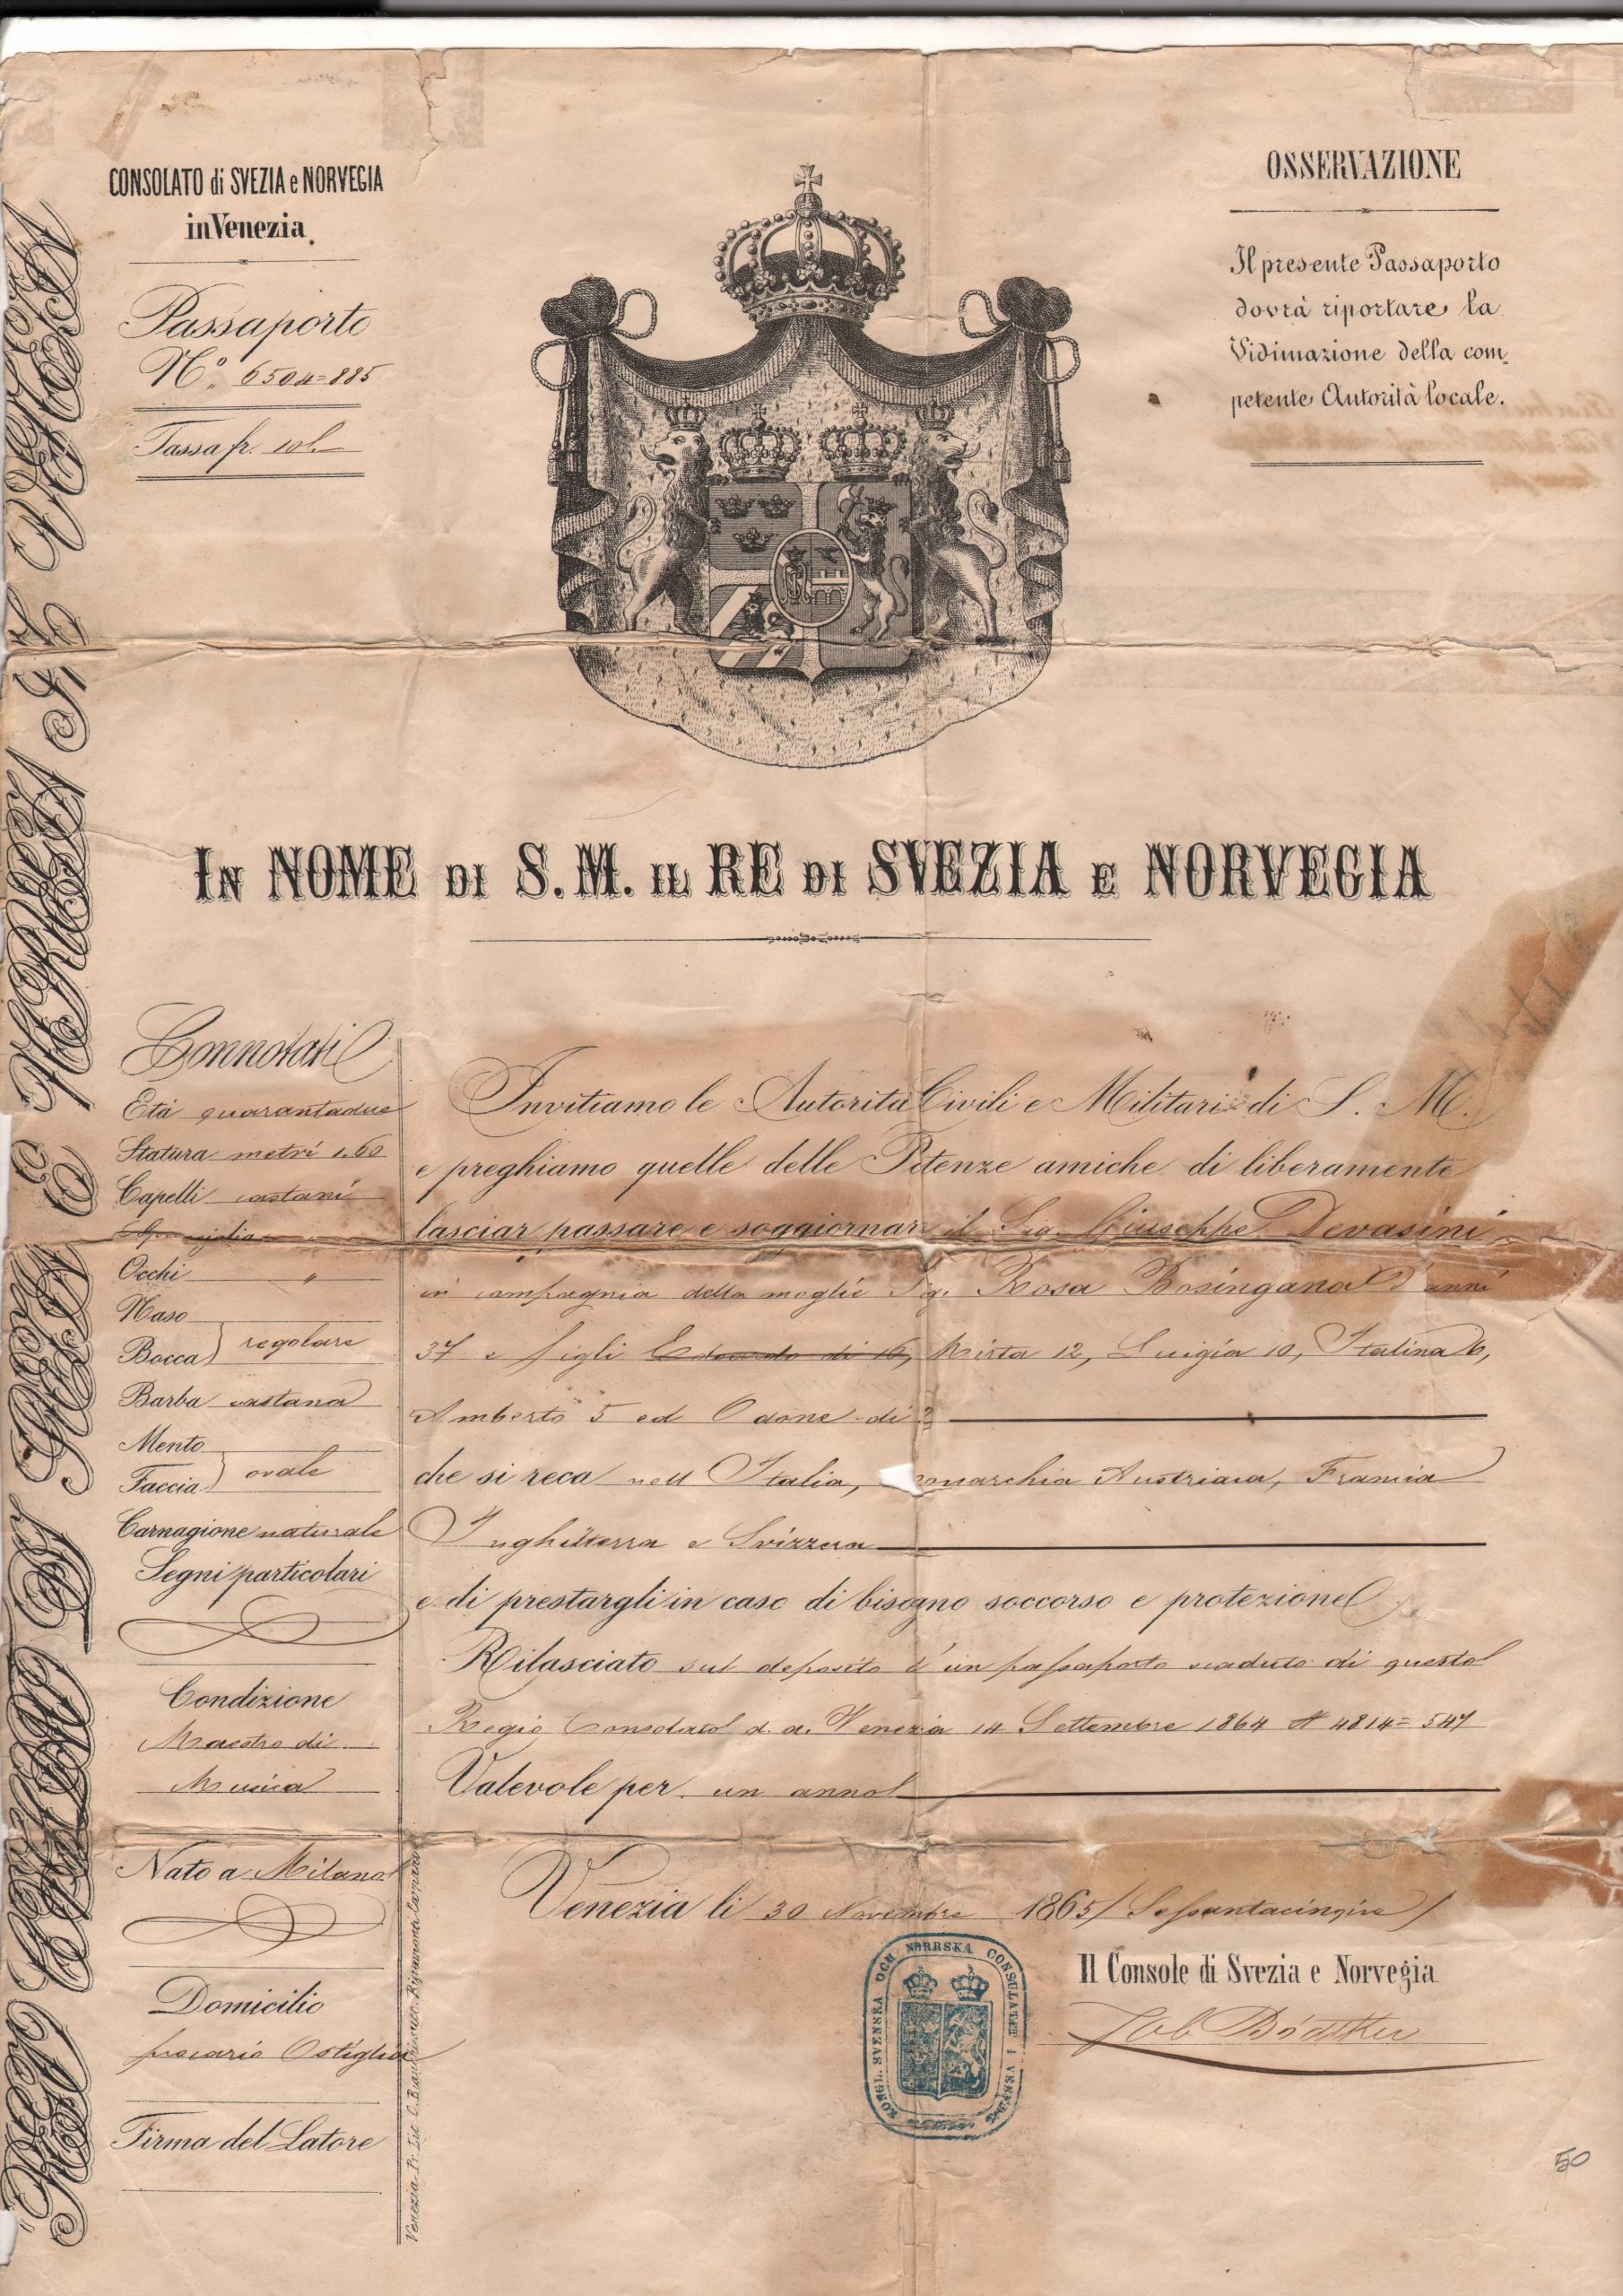 CONSOLATO di SVEZIA e NORVEGIA
in Venezia.
Passaporto
N.º 6504=885
Tassa fr. 10
OSSERVAZIONE
Il presente Passaporto
dovrà riportare la
Vidimazione della com-
petente Autorità locale.
IN NOME DI S. M. IL RE DI SVEZIA E NORVEGIA
Connotati
Età quarantadue
Statura metri 1.60
Capelli castani
Occhi "
Naso
Bocca } regolare
Barba castana
Mento
Faccia } ovale
Carnagione naturale
Segni particolari
Condizione
Maestro di
Musica
Nato a Milano
Domicilio
Ostiglia
Firma del Latore
Invitiamo le Autorità Civili e Militari di S. M.
e preghiamo quelle delle Potenze amiche di liberamente
lasciar passare e soggiornare il Sig. Giuseppe Devasini
in compagnia della moglie Sig. Rosa Bosingana d'anni
37 e figli Edoardo di 16, Mirta 12, Luigia 10, Italina 6,
Amberto 5 ed Odone di
che si reca nell Italia, monarchia Austriaca, Francia
Inghilterra e Svizzera
e di prestargli in caso di bisogno soccorso e protezione.
Rilasciato sul deposito d'un passaporto scaduto di questo
Regio Consolato d. a. Venezia 14 Settembre 1864 N 4814=547
Valevole per un anno
Venezia li 30 Novembre 1865 / Sessantacinque /
Il Console di Svezia e Norvegia
KONGL. SVENSKA OCH NORRSKA CONSULATET I VENEDIG
Venezia Pr. Lit.
50